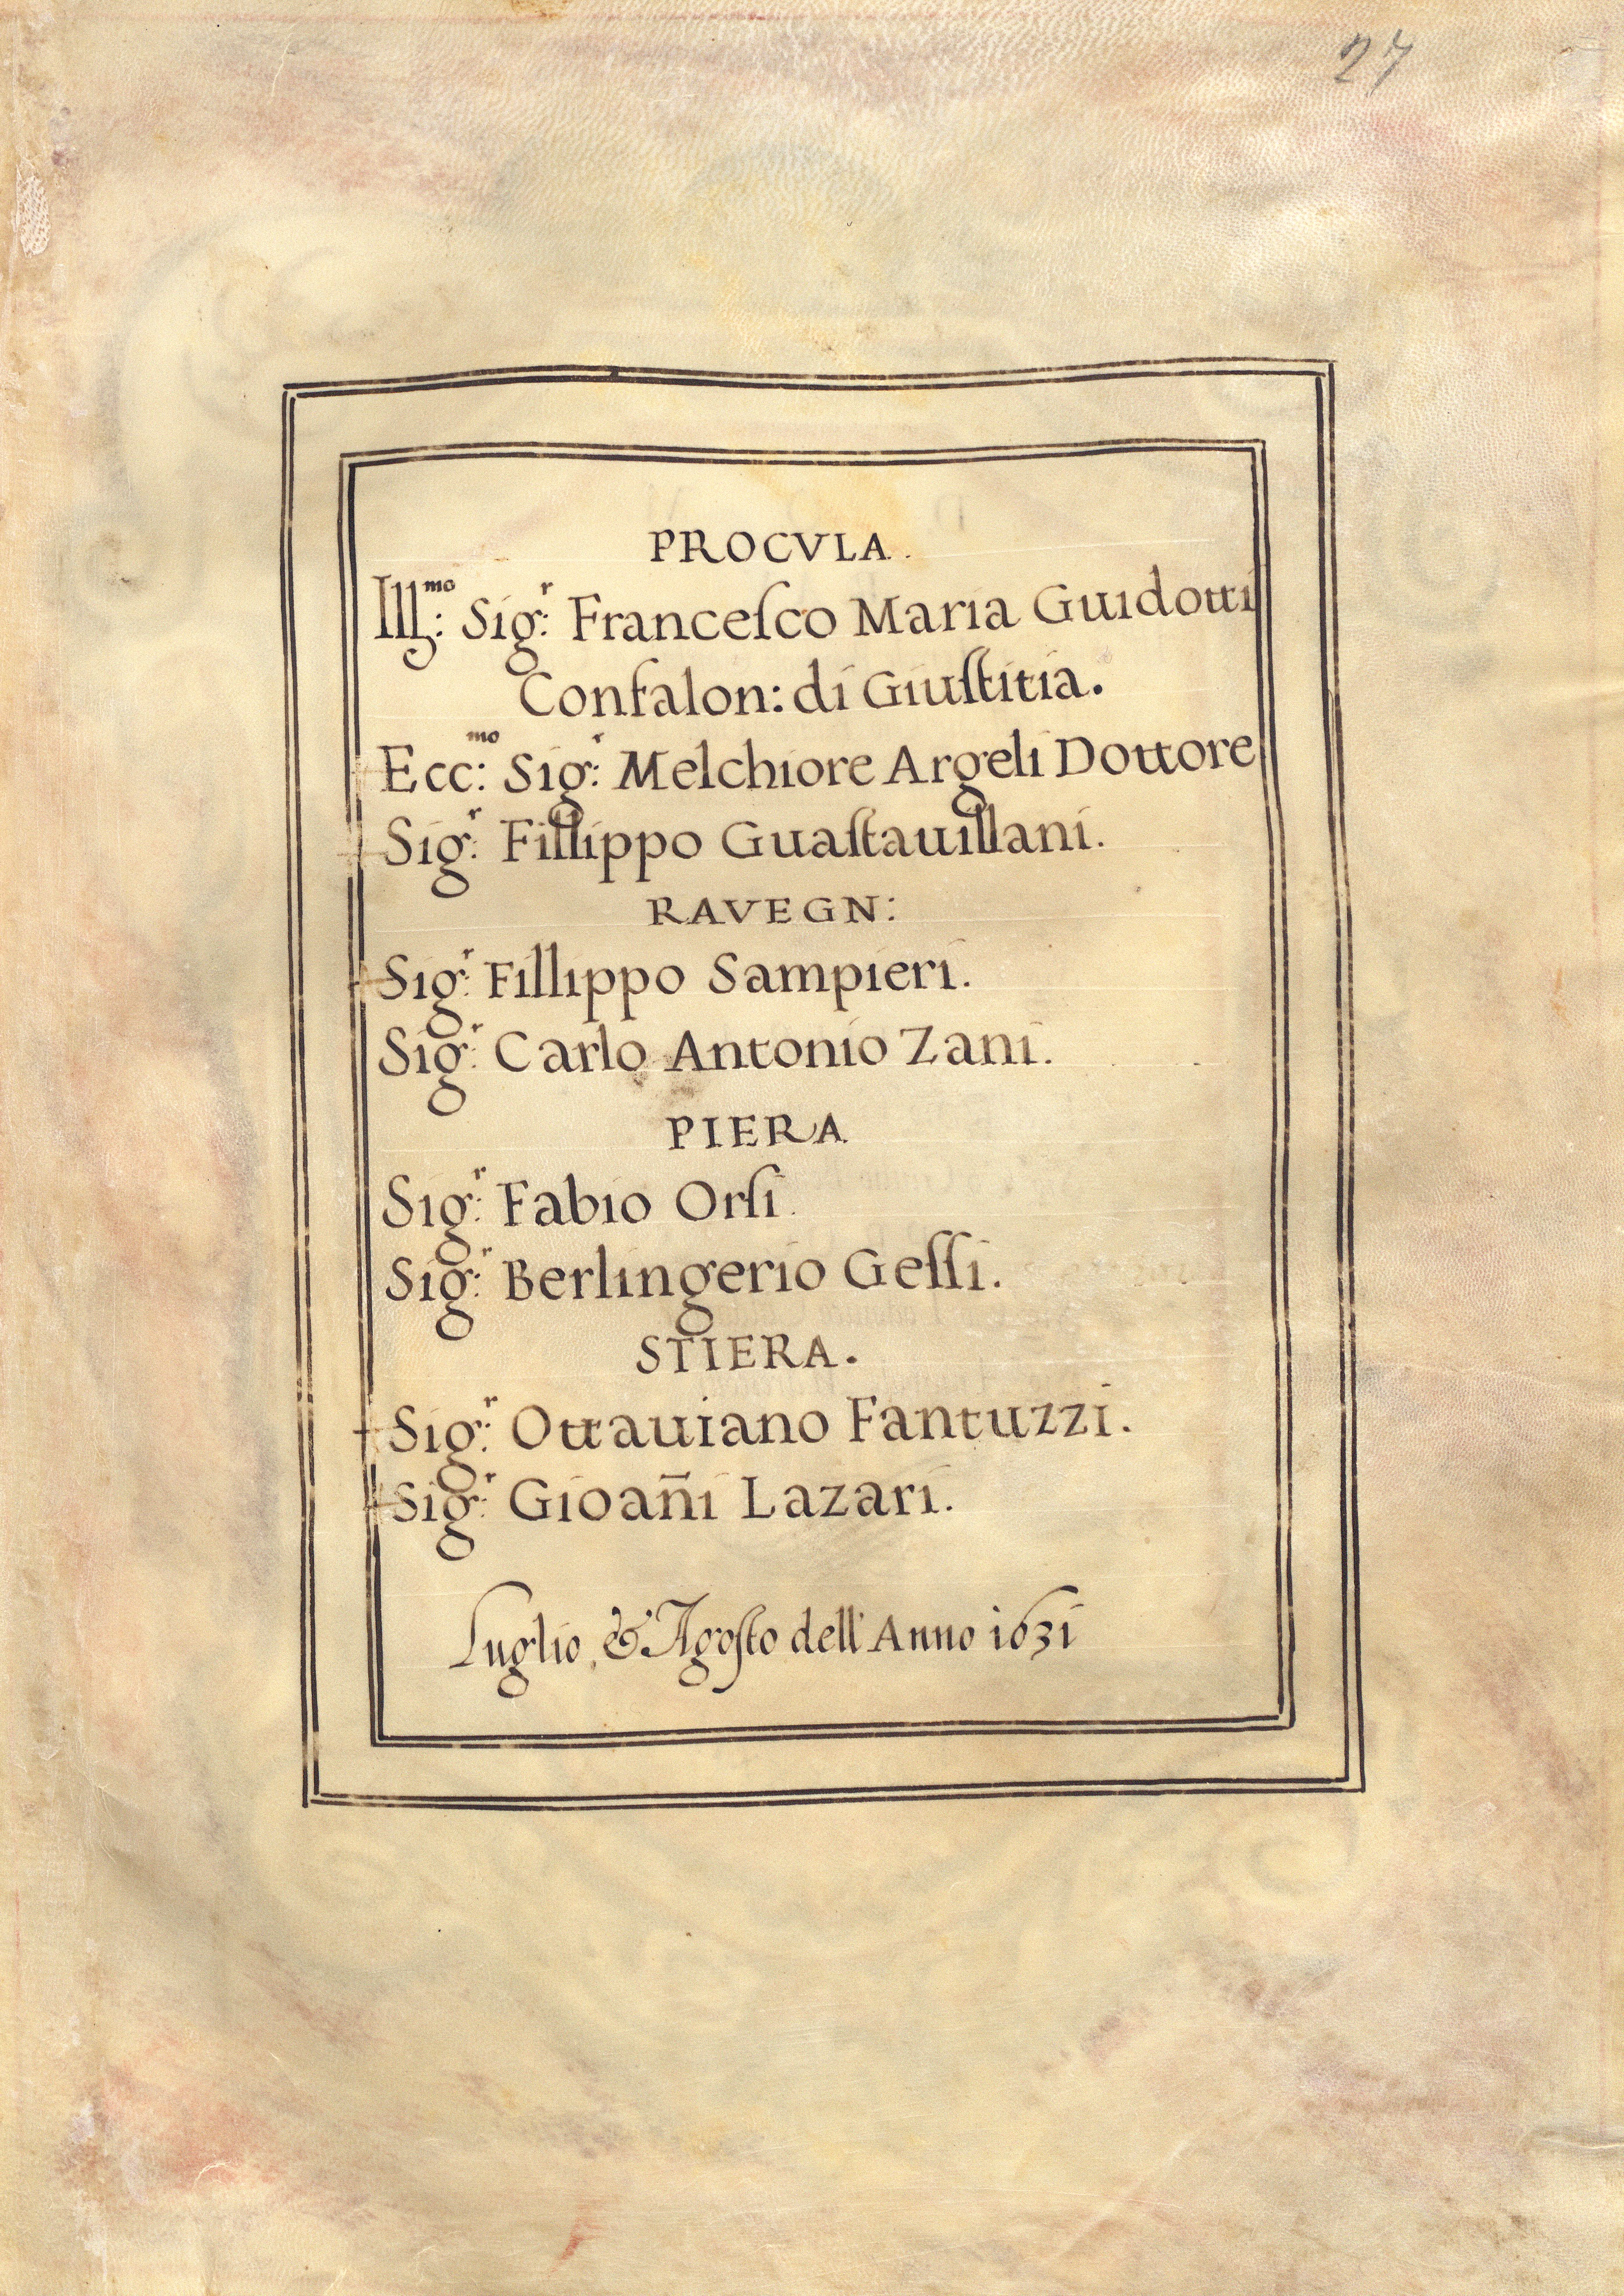 27
PROCVLA.
Ill:ᵐᵒ Sig:ʳ Franceſco Maria Guidotti
Confalon: di Giuſtitia.
Ecc:ᵐᵒ Sig:ʳ Melchiore Argeli Dottore
Sig:ʳ Fillippo Guaſtauillani.
RAVEGN:
Sig:ʳ Fillippo Sampieri.
Sig:ʳ Carlo Antonio Zani.
PIERA
Sig:ʳ Fabio Orſi.
Sig:ʳ Berlingerio Geſſi.
STIERA.
Sig:ʳ Ottauiano Fantuzzi.
Sig:ʳ Gioan̄i Lazari.
Luglio, & Agoſto dell' Anno 1631